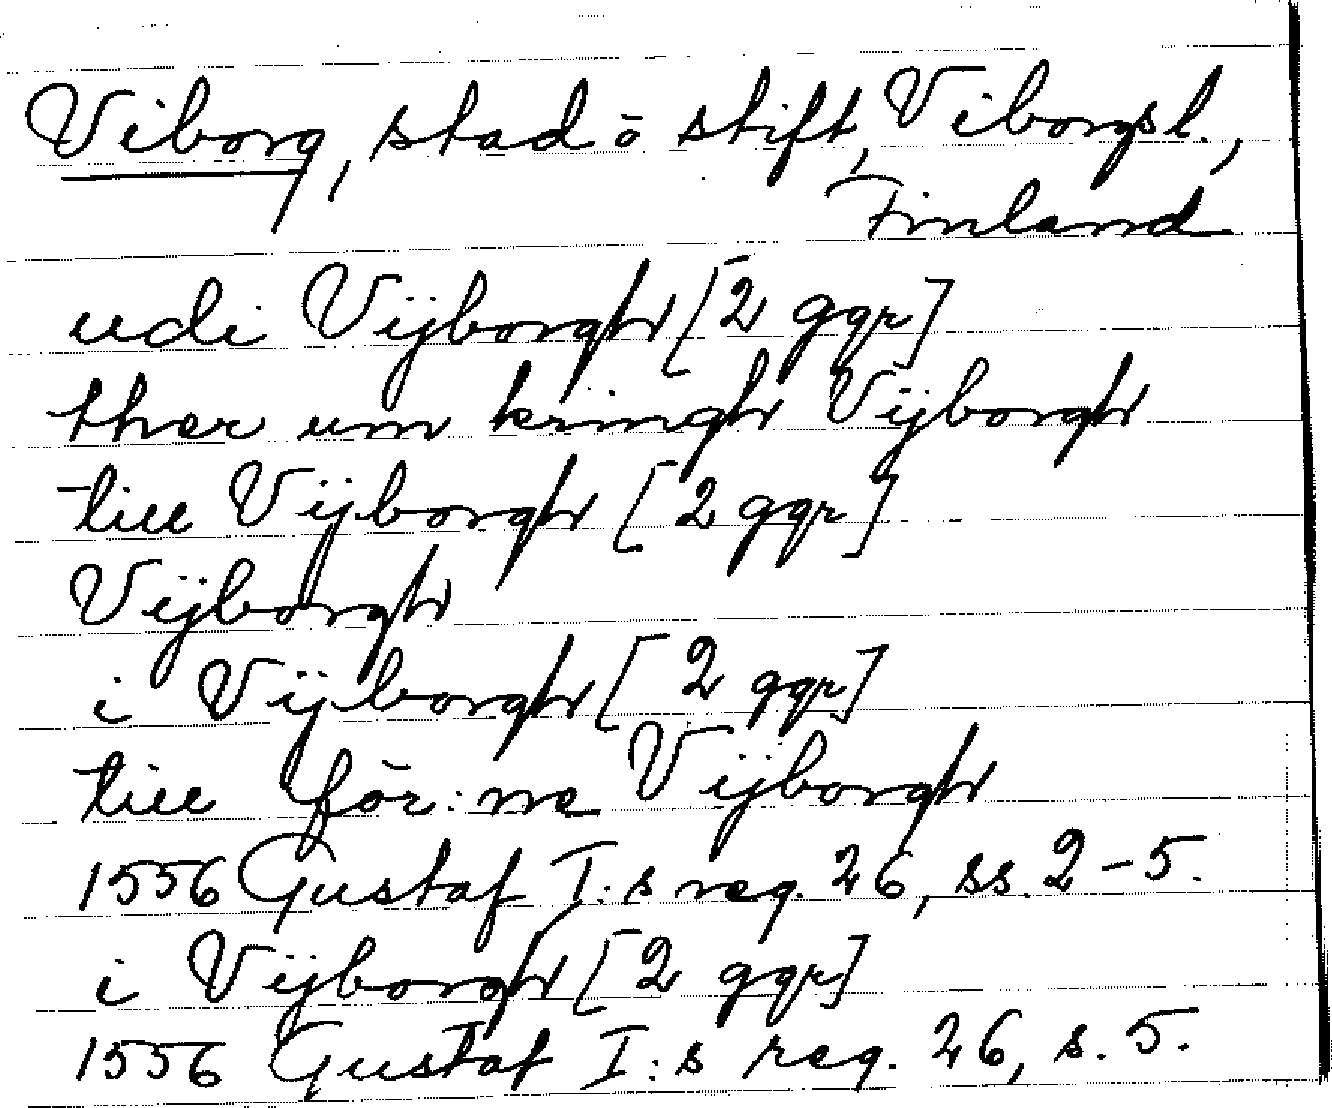 Viborg, stad o stift, Viborgsl.,
Finland
udi Vijborgh [2 ggr]
ther um kringh Vijborgh
till Vijborgh [2 ggr]
Vijborgh
i Vijborgh [2 ggr]
till för:ne Vijborgh
1556 Gustaf I:s reg. 26, ss. 2-5.
i Vijborgh [2 ggr]
1556 Gustaf I:s reg. 26, s. 5.